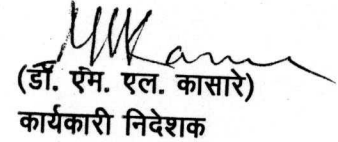 (डॉ. एम. एल. कासारे)
कार्यकारी निदेशक